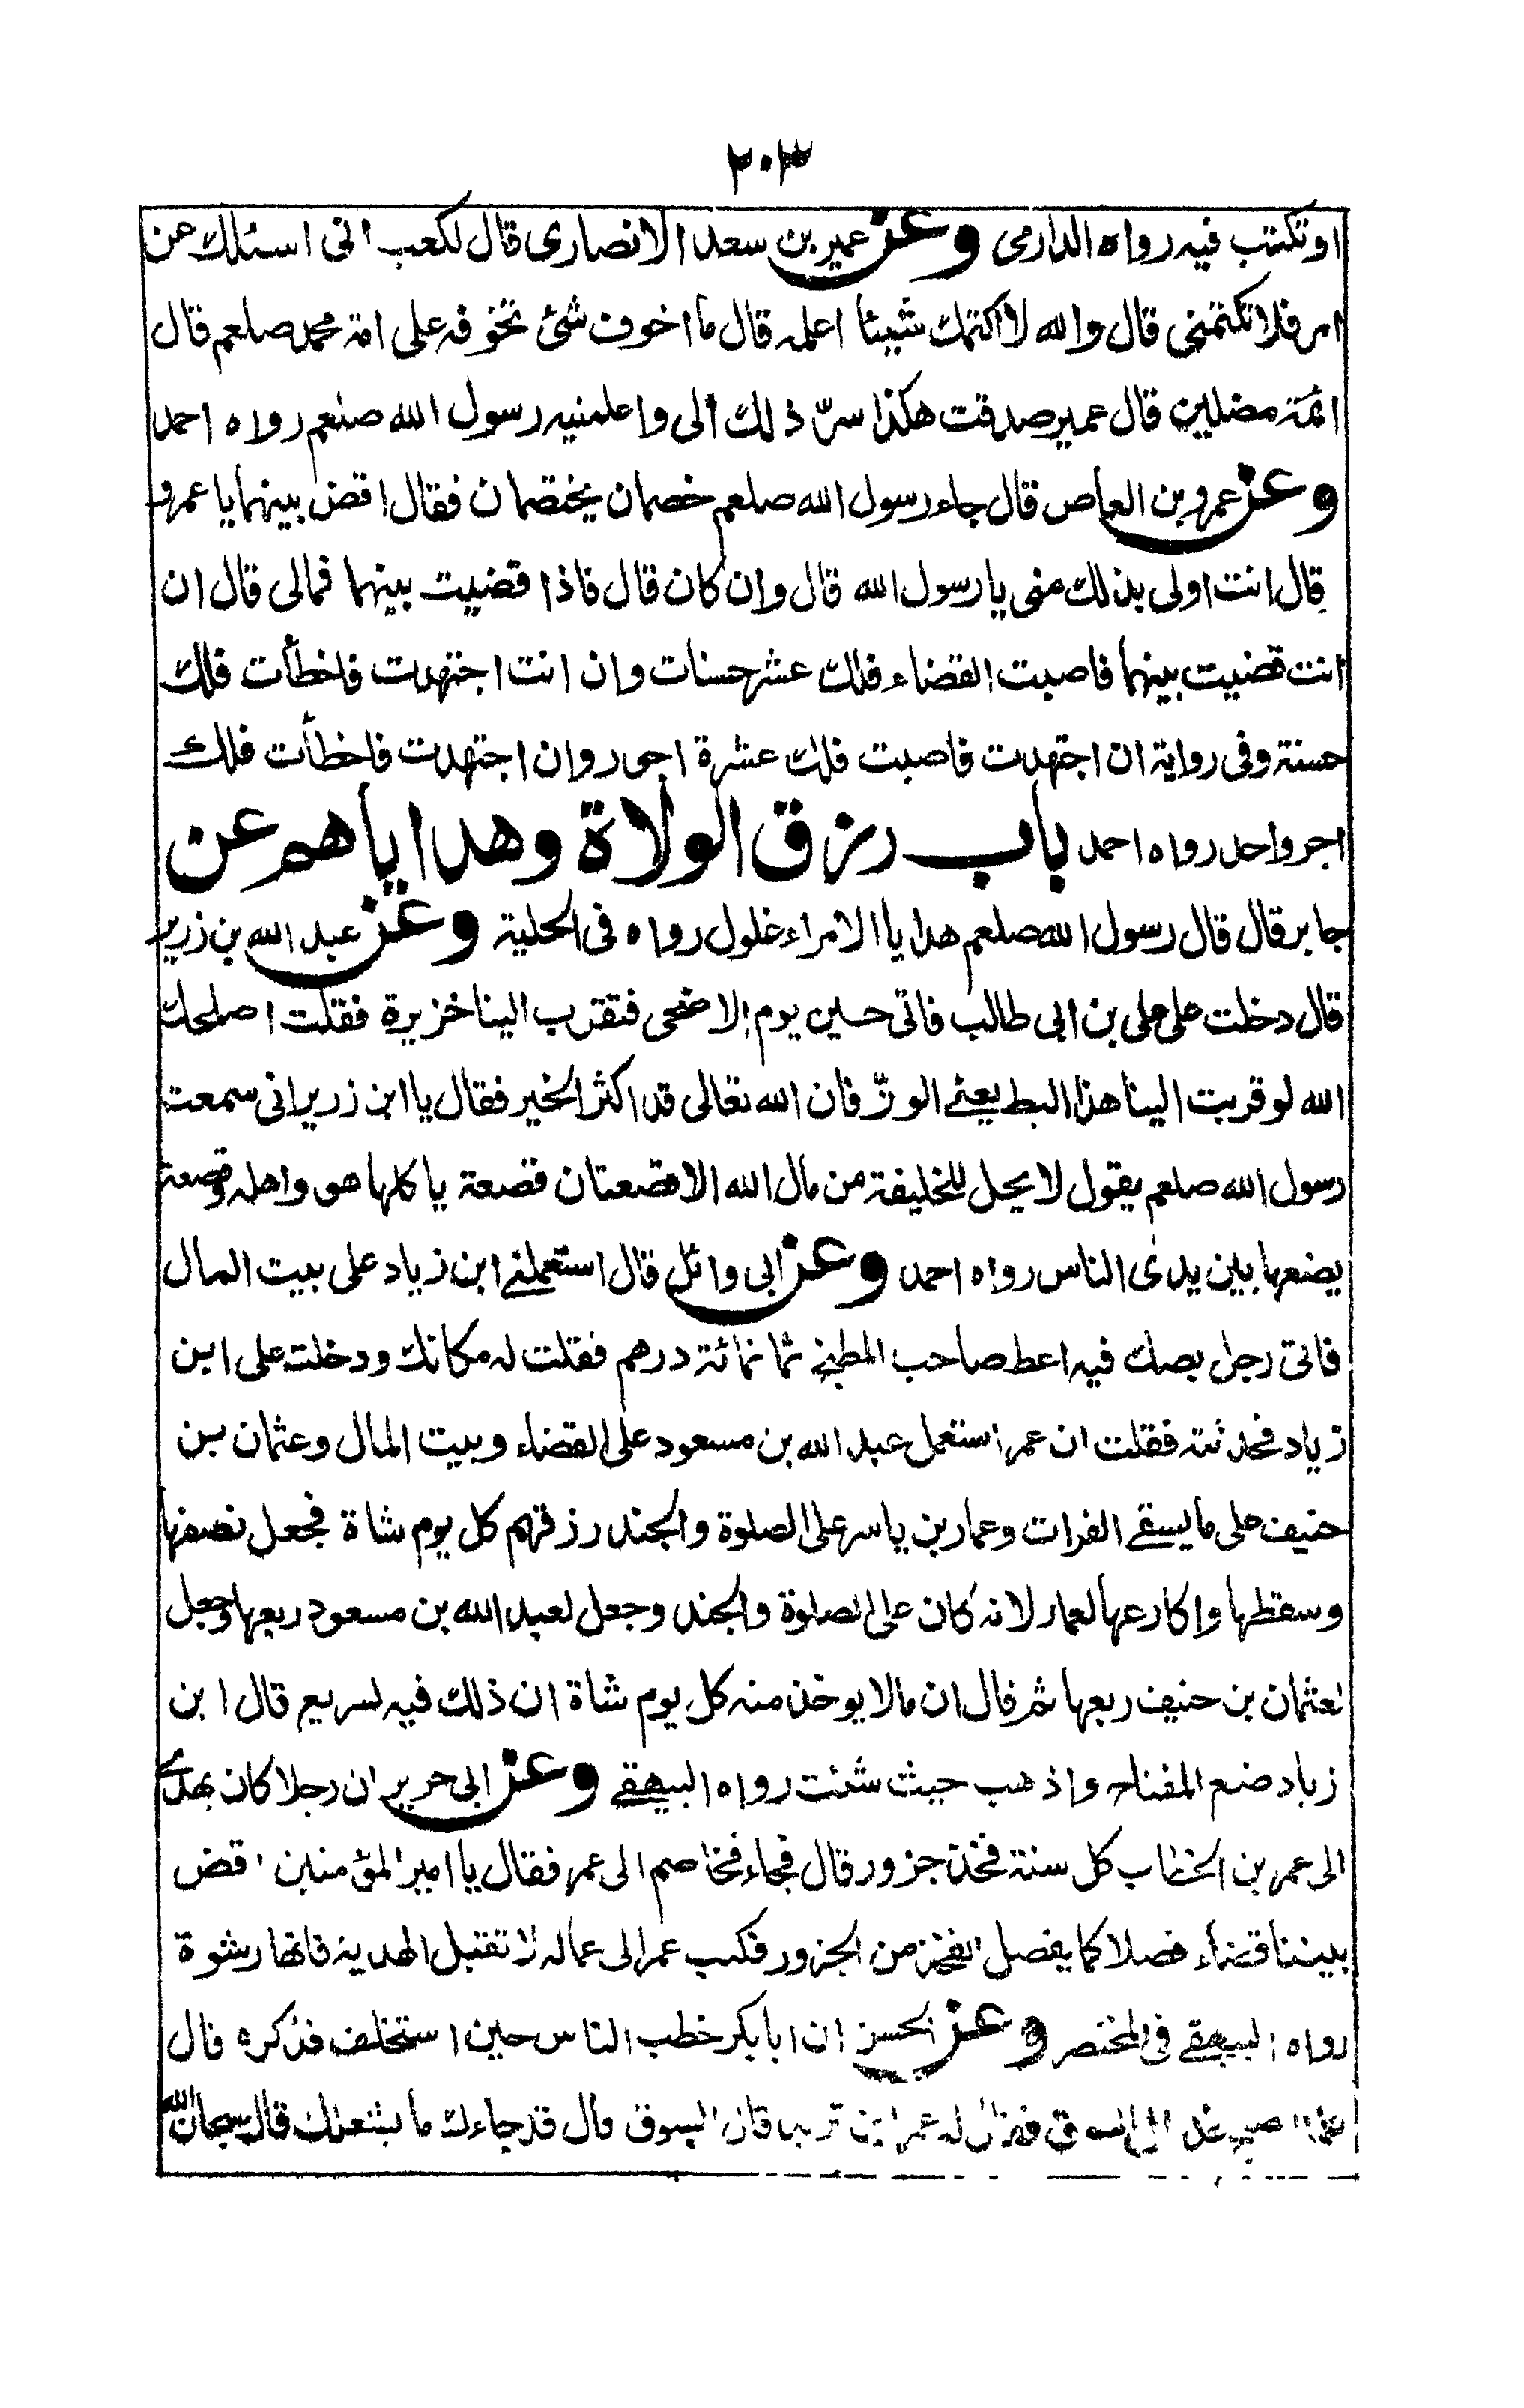 ٢٠٣
او تكتب فيه رواه الدارمى وعن عمير بن سعد الانصارى قال لكعب انى اسئلك عن
امر فلا تكتمنى قال والله لا اكتمك شيئا اعلمه قال ما اخوف شئ تخوفه على امة محمد صلعم قال
ائمة مضلين قال عمير صدقت هكذا سرّ ذلك الى واعلمنيه رسول الله صلعم رواه احمد
وعن عمرو بن العاص قال جاء رسول الله صلعم خصمان يختصمان فقال اقض بينهما يا عمرو
قال انت اولى بذلك منى يا رسول الله قال وان كان قال فاذا قضيت بينهما فمالى قال ان
انت قضيت بينهما فاصبت القضاء فلك عشر حسنات وان انت اجتهدت فاخطأت فلك
حسنة وفى رواية ان اجتهدت فاصبت فلك عشرة اجور وان اجتهدت فاخطأت فلك
اجر واحد رواه احمد باب رزق الولاة وهداياهم عن
جابر قال قال رسول الله صلعم هدايا الامراء غلول رواه فى الحلية وعن عبد الله بن زرير
قال دخلت على على بن ابى طالب فاتى حسين يوم الاضحى فتقرب الينا خزيرة فقلت اصلحك
الله لو قربت الينا هذا البط يعنى الوزّ فان الله تعالى قد اكثر الخير فقال يا ابن زرير انى سمعت
رسول الله صلعم يقول لا يحل للخليفة من مال الله الا قصعتان قصعة ياكلها هو واهله وقصعة
يضعها بين يدى الناس رواه احمد وعن ابى وائل قال استعملنى ابن زياد على بيت المال
فاتى رجل بصك فيه اعط صاحب المطبخ ثمانمائة درهم فقلت له مكانك ودخلت على ابن
زياد فحدثته فقلت ان عمر استعمل عبد الله بن مسعود على القضاء وبيت المال وعثمان بن
حنيف على ما يسقى الفرات وعمار بن ياسر على الصلوة والجند رزقهم كل يوم شاة فجعل نصفها
وسقطها واكارعها لعمار لانه كان على الصلوة والجند وجعل لعبد الله بن مسعود ربعها وجعل
لعثمان بن حنيف ربعها ثم قال ان مالا يوخذ منه كل يوم شاة ان ذلك فيه لسريع قال ابن
زياد ضع المفتاح واذهب حيث شئت رواه البيهقى وعن ابى حرير ان رجلا كان يهدى
الى عمر بن الخطاب كل سنة فخذ جزور قال فجاء فخاصم الى عمر فقال يا امير المؤمنين اقض
بيننا قضاء فصلا كما يفصل الفخذ من الجزور فكتب عمر الى عماله لا تقبل الهدية فانها رشوة
رواه البيهقى فى المختصر وعن الحسن ان ابا بكر خطب الناس حين استخلف فذكره قال
فلما اصبح غدا الى السوق فقال له عمر اين تريد قال السوق قال قد جاءك ما يشغلك قال سبحان الله